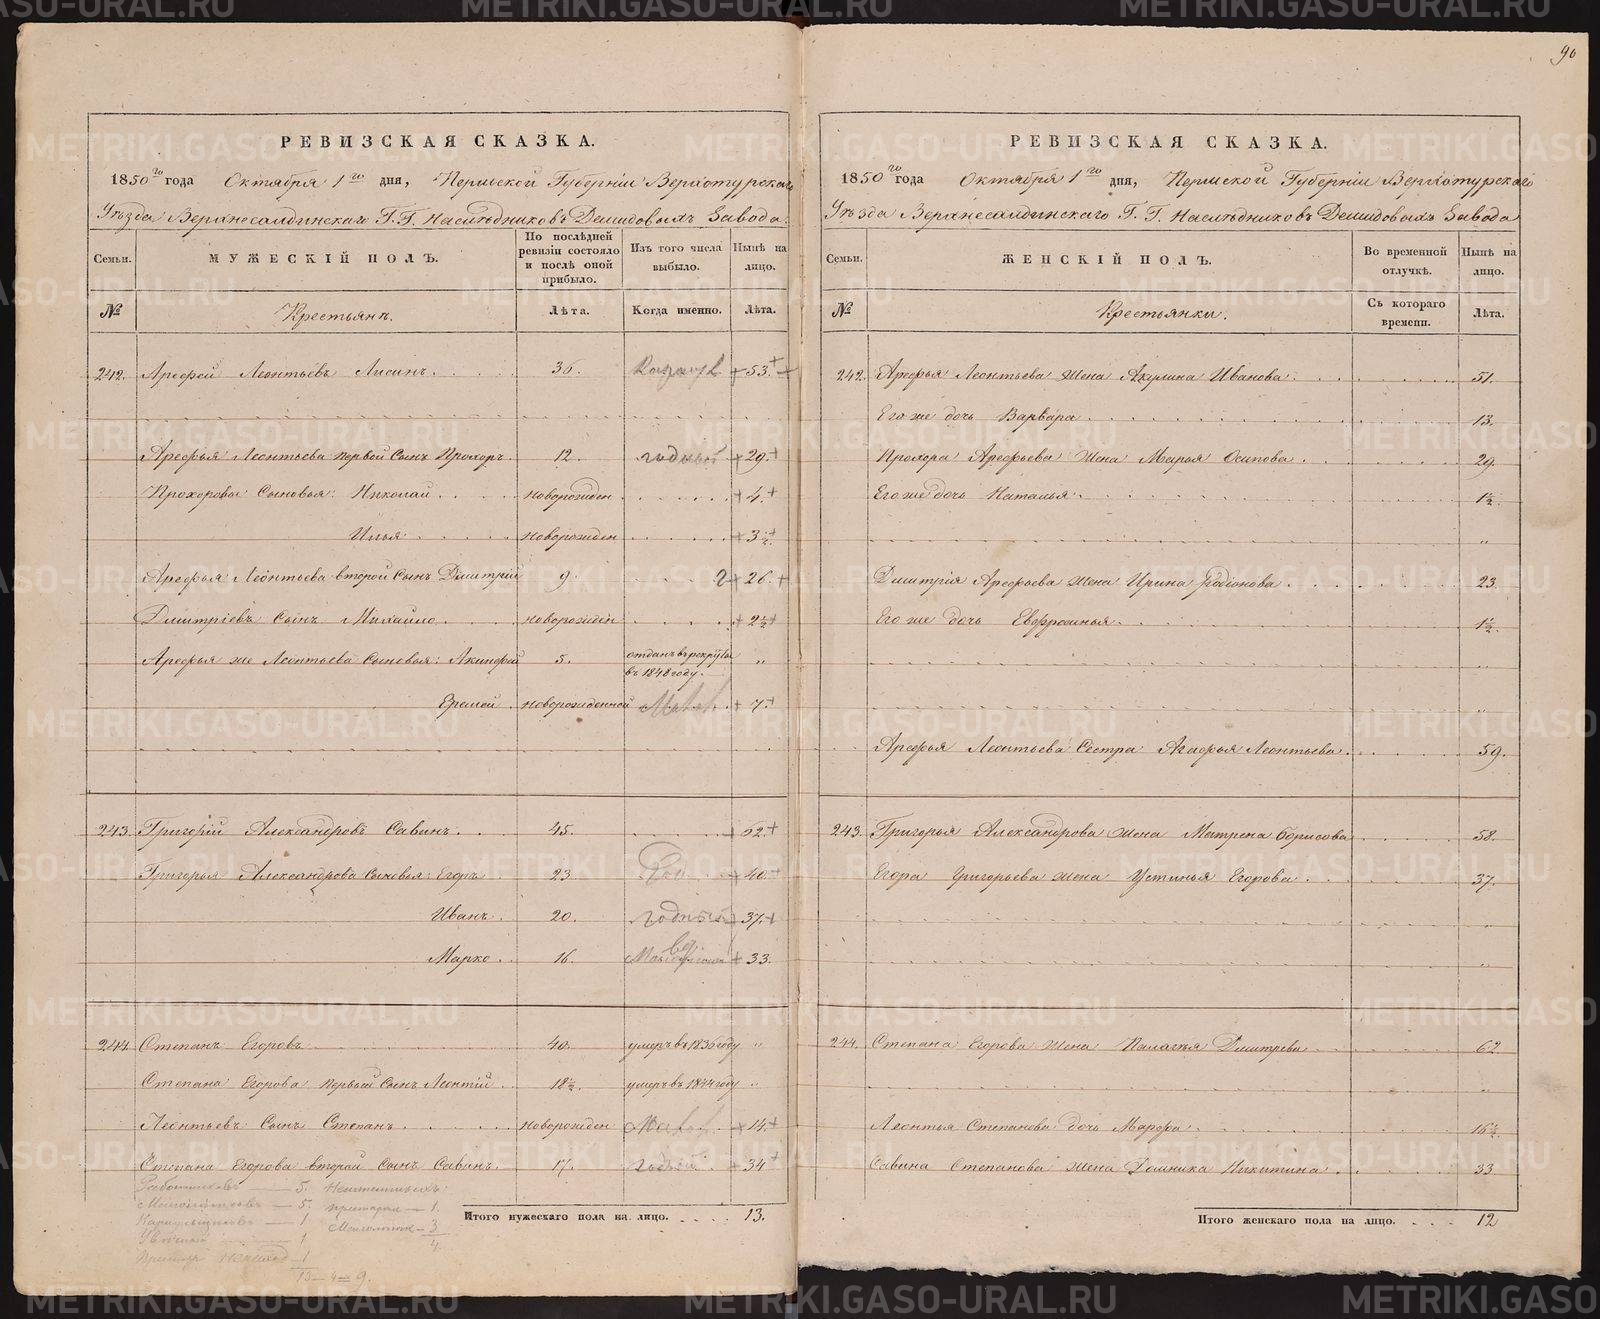 90
РЕВИЗСКАЯ СКАЗКА.
1850го года Октября 1го дня, Пермской Губерніи Верхотурскаго
Уѣзда Верхнесалдинскаго Г.Г. Наслѣдниковъ Демидовыхъ Завода.
Семьи.
МУЖЕСКІЙ ПОЛЪ.
По послѣдней ревизіи состояло и послѣ оной прибыло.
Изъ того числа выбыло.
Нынѣ на лицо.
№
Крестьянъ.
Лѣта.
Когда именно.
Лѣта.
242. Арефей Леонтьевъ Лисинъ. 36. 53.
Арефья Леонтьева первой Сынъ Прохоръ. 12. годный 29.
Прохоровы Сыновья: Николай новорожден 4.
Илья новорожден 3½.
Арефья Леонтьева второй Сынъ Дмитрій 9. 26.
Дмитріевъ Сынъ Михайло новорожден 2½
Арефья же Леонтьева Сыновья: Акинфей 5. отданъ въ рекруты въ 1848 году. „
Еремей новорожденной 7.
243. Григорій Александровъ Савинъ. 45. 62
Григорья Александрова Сыновья: Егоръ 23 40.
Иванъ. 20. годный 37.
Марко. 16. 33.
244. Степанъ Егоровъ 40. умеръ въ 1836 году „
Степана Егорова первый Сынъ Леонтій 18½. умеръ въ 1844 году „
Леонтьевъ Сынъ Степанъ новорожден 14.
Степана Егорова второй Сынъ Савинъ. 17. годный 34
Работниковъ — 5.
Малолѣтковъ — 5.
— 1
— 1
— 1
13 — 4 = 9.
— 1.
— 3
4.
Итого мужескаго пола на лицо. 13.
РЕВИЗСКАЯ СКАЗКА.
1850го года Октября 1го дня, Пермской Губерніи Верхотурскаго
Уѣзда Верхнесалдинскаго Г.Г. Наслѣдниковъ Демидовыхъ Завода
Семьи.
ЖЕНСКІЙ ПОЛЪ.
Во временной отлучкѣ.
Нынѣ на лицо.
№
Крестьянки.
Съ котораго времени.
Лѣта.
242. Арефья Леонтьева жена Акулина Иванова. 51.
Его же дочь Варвара 13.
Прохора Арефьева жена Марья Осипова. 29.
Его же дочь Наталья 1½.
„
Дмитрія Арефьева жена Ирина Родіонова. 23.
Его же дочь Евфросинья 1½.
„
„
Арефья Леонтьева Сестра Агафья Леонтьева. 59.
243. Григорья Александрова жена Матрена Борисова 58.
Егора Григорьева жена Устинья Егорова. 37.
„
„
244. Степана Егорова жена Палагья Дмитрева 62.
„
Леонтья Степанова дочь Марфа. 16½.
Савина Степанова жена Домника Никитина. 33
Итого женскаго пола на лицо. 12
METRIKI.GASO-URAL.RU